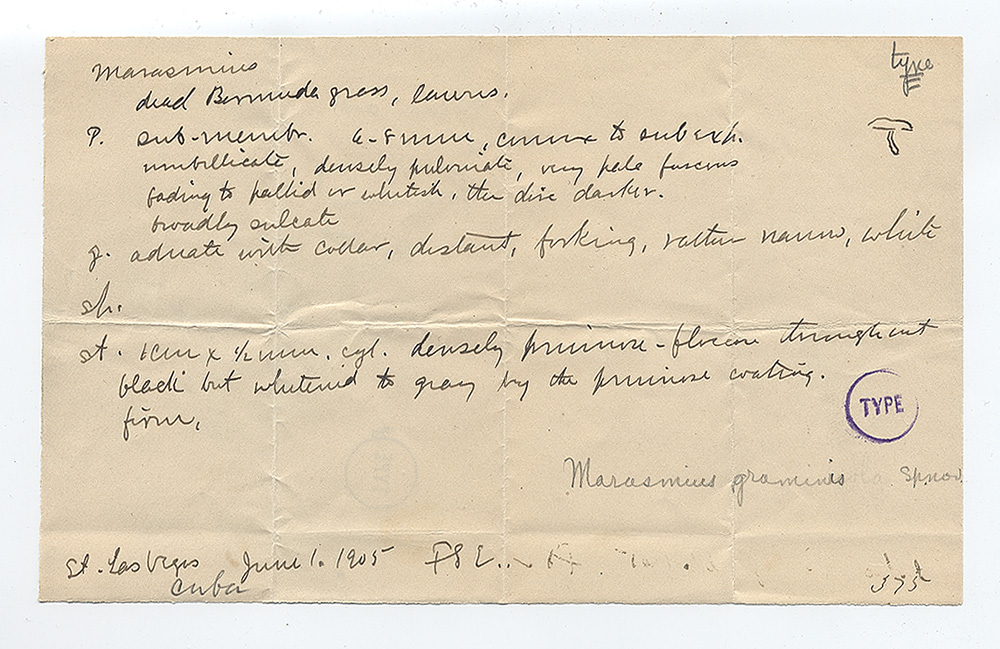 Marasmius
type
dead Bermuda grass, lawns.
P. sub-membr. 6-8 mm, convex to subexp.
umbillicate, densely pulvinate, very pale fuscous
fading to pallid or whitish, the disc darker.
broadly sulcate
g. adnate with collar, distant, forking, rather narrow, white
sp.
st. 1cm x ½ mm. cyl. densely pruinose-floccose throughout
black but whitened to gray by the pruinose coating.
firm,
TYPE
Marasmius graminis sp. nov.
St. Las Vegas June 1. 1905 FSE.
Cuba